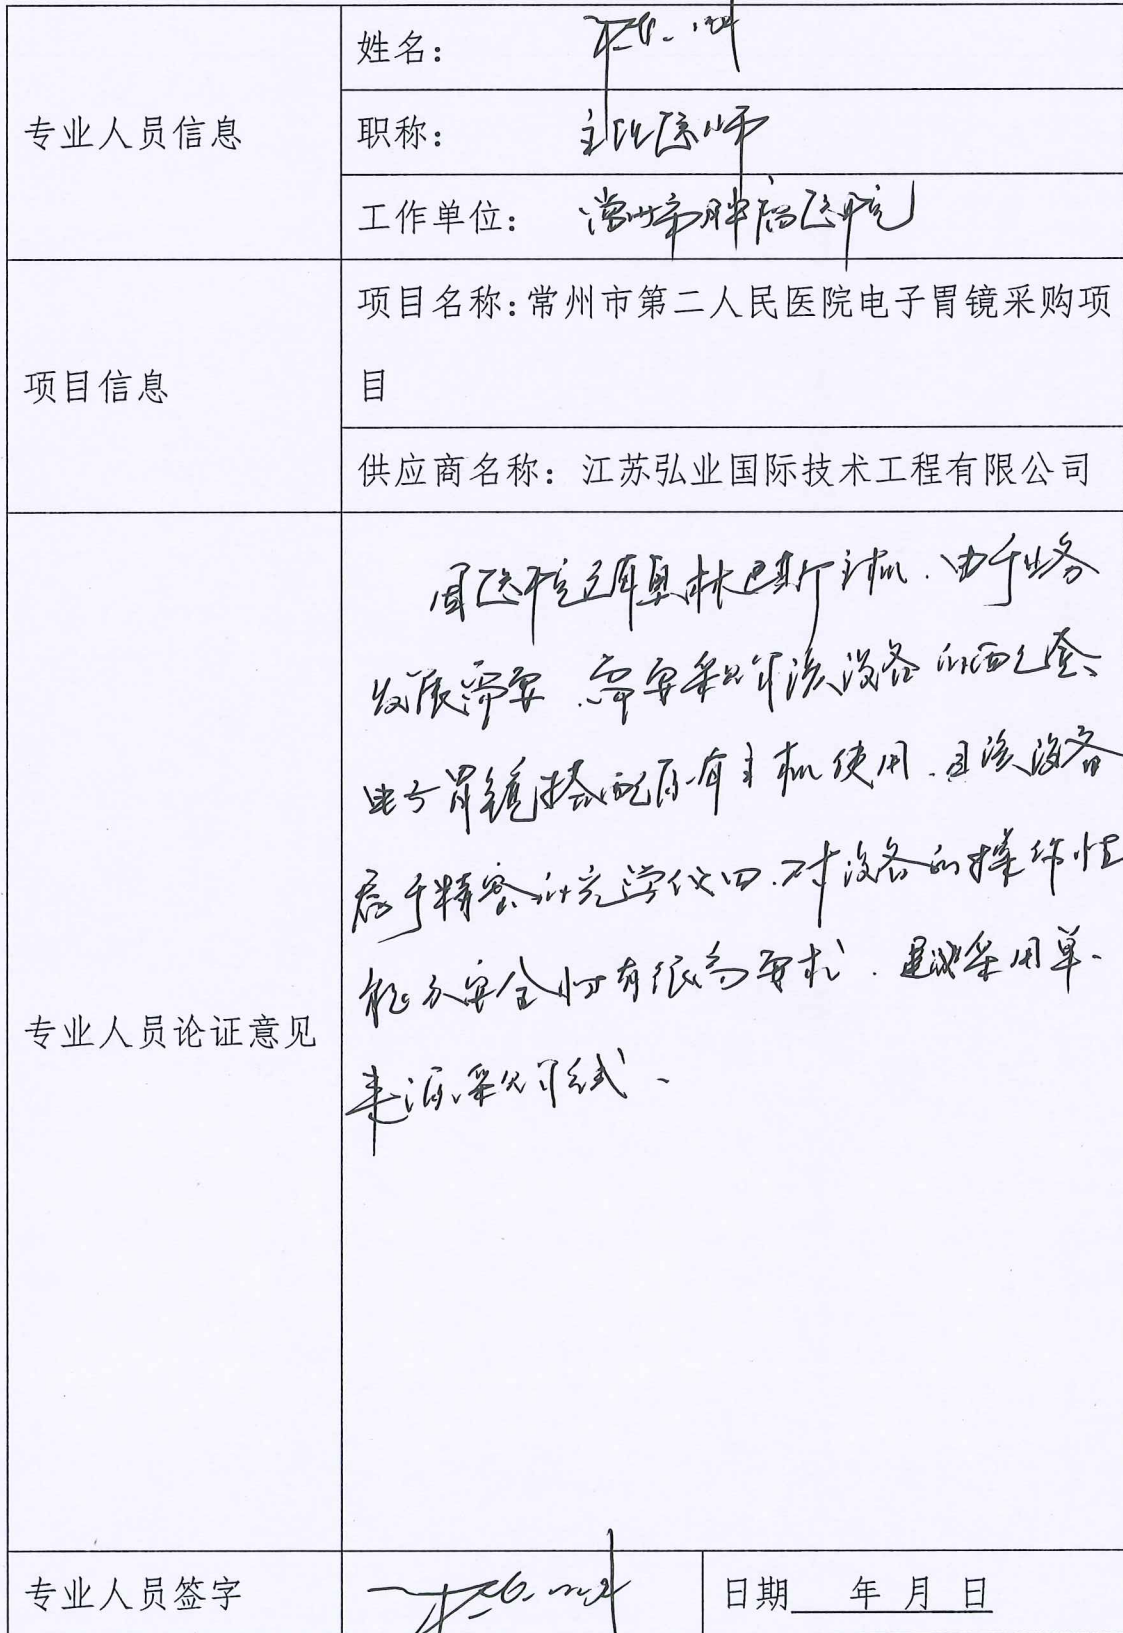 专业人员信息
姓名：
职称： 主任医师
工作单位： 常州市肿瘤医院
项目信息
项目名称：常州市第二人民医院电子胃镜采购项
目
供应商名称：江苏弘业国际技术工程有限公司
专业人员论证意见
因医院已有奥林巴斯主机，由于业务
发展需要，需要采购该设备的配套
电子胃镜搭配原有主机使用，且该设备
属于精密的光学仪器，对设备的操作性
能及安全性有很高要求，建议采用单一
来源采购方式。
专业人员签字
日期 年 月 日